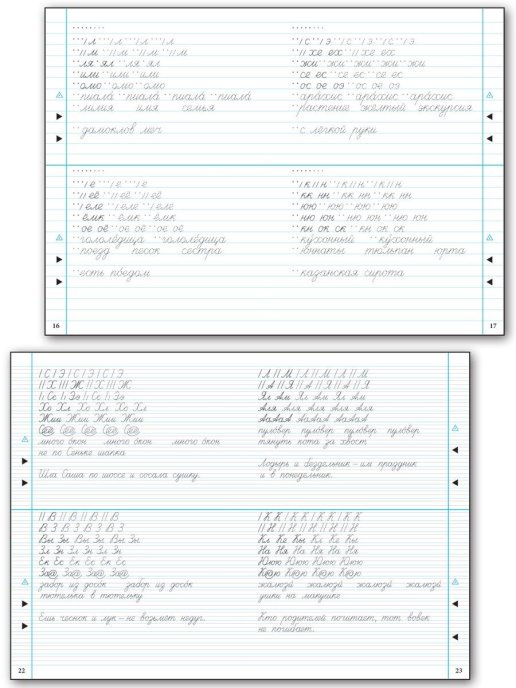 л л л л
м м м м
ля ял ля ял
ими ими ими
омо омо омо
пиала́ пиала́ пиала́ пиала́
лилия имя семья
дамоклов меч
с э с э с э с э
х ж е х е х
жи жи жи жи жи
се ес се ес се ес
ос ое оэ ос ое оэ
ара́хис ара́хис ара́хис
растение жёлтый экскурсия
с лёгкой руки
е е е
её её её
еле еле еле
ёмк ёмк ёмк
ое оё ое оё ое оё
гололе́дица гололе́дица
поезд песок сестра
есть поедом
к н к н к н
кк нн кк нн кк нн
юю юю юю юю
ню юн ню юн ню юн
кн ок ск кн ок ск
ку́хонный ку́хонный
юннаты тюльпан юрта
казанская сирота
16
17
С Э С Э С Э
Х Ж Х Ж
Се Зэ Се Зэ Се Зэ
Хо Хл Хо Хл Хо Хл
Жии Жии Жии Жии
много о́кон много о́кон много о́кон
не по Сеньке шапка
Шла Саша по шоссе и сосала сушку.
Л М Л М Л М
А Я А Я А Я
Ял Ам Ял Ам Ял Ам
Аля Аля Аля Аля Аля
АаАаА АаАаА АаАаА
пуло́вер пуло́вер пуло́вер пуло́вер
тянуть кота за хвост
Лодырь и бездельник – им праздник
и в понедельник.
В В В
В З В З В З В З
Вы Зы Вы Зы Вы Зы
Зл Зн Зл Зн Зл Зн
Ек Ес Ек Ес Ек Ес
задо́р из доск задо́р из доск
тютелька в тютельку
Ешь чеснок и лук – не возьмёт недуг.
К К К К К К
Н Н Н Н Н
Кл Ке Кы Кл Ке Кы
На Ня На Ня На Ня
Ююю Ююю Ююю Ююю
жалюзи́ жалюзи́ жалюзи́ жалюзи́
ушки на макушке
Кто родителей почитает, тот вовек
не погибает.
22
23